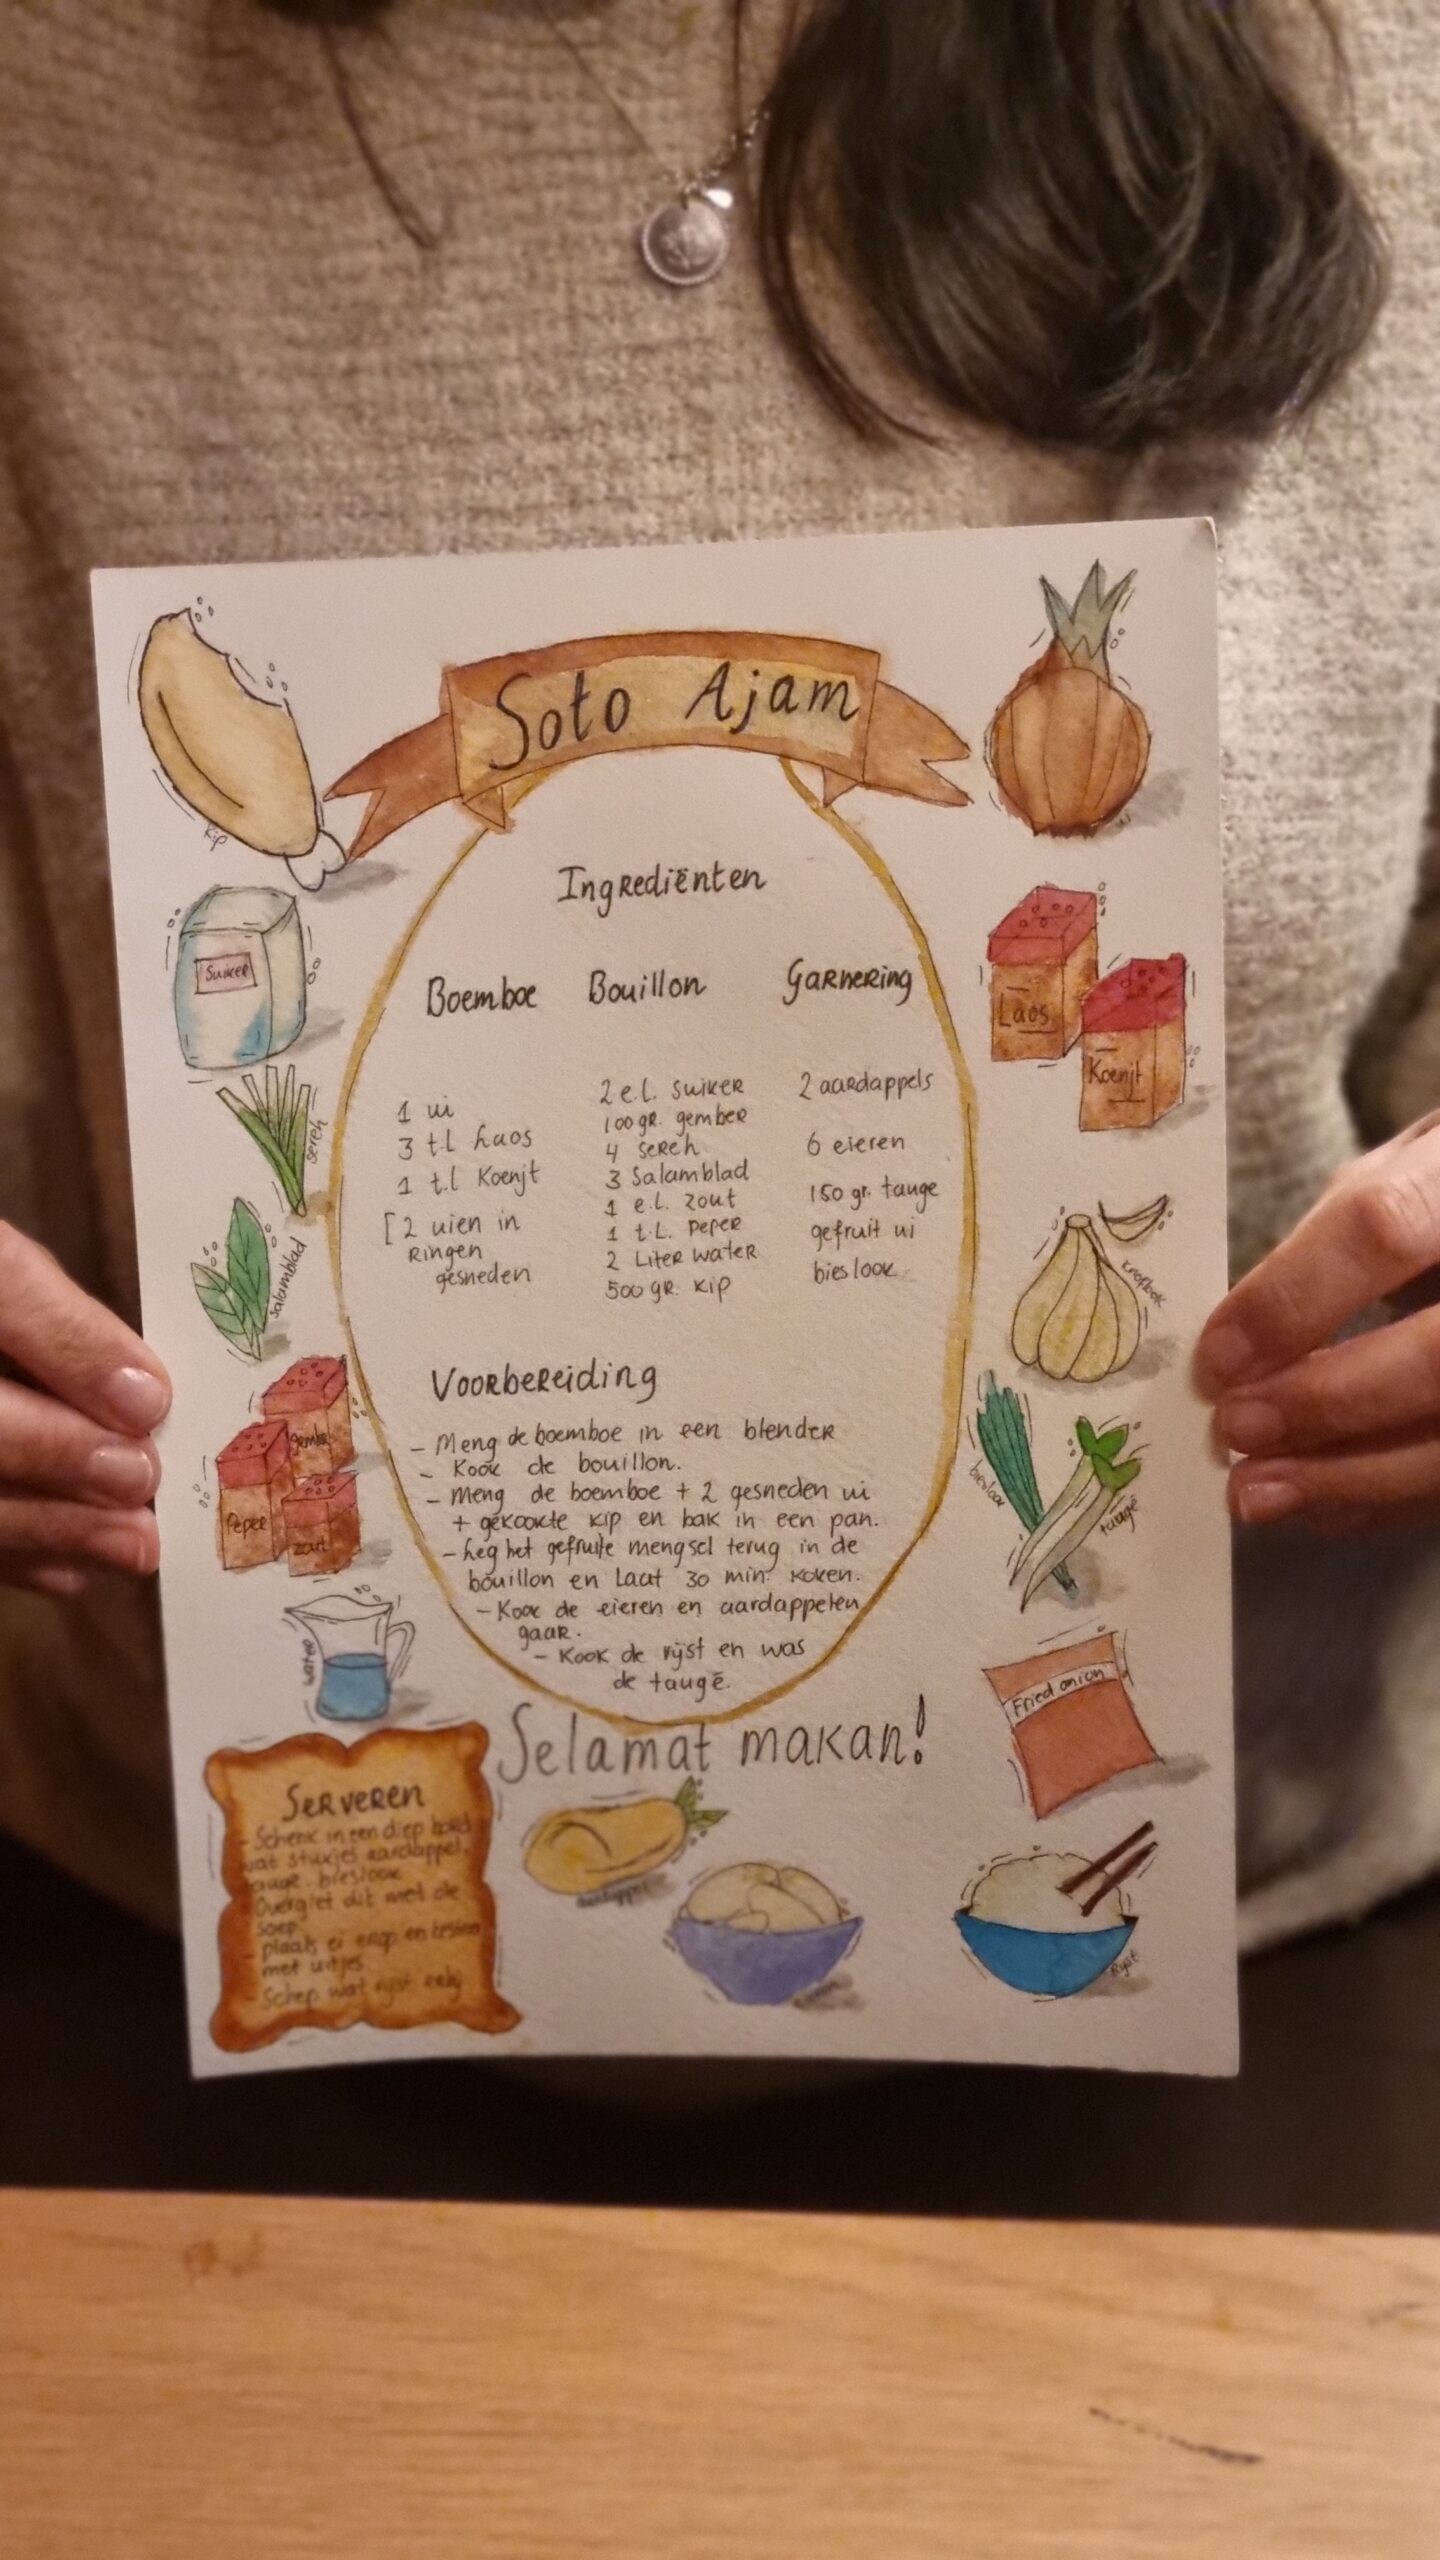 Soto Ajam
Ingrediënten
Boemboe
1 ui
3 t.l Laos
1 t.l Koenjt
[2 uien in
Ringen
gesneden
Bouillon
2 e.l. suiker
100 gr. gember
4 sereh
3 Salamblad
1 e.l. zout
1 t.l. peper
2 Liter water
500 gr. kip
Garnering
2 aardappels
6 eieren
150 gr. tauge
gefruit ui
bieslook
Voorbereiding
- Meng de boemboe in een blender
- Kook de bouillon.
- Meng de boemboe + 2 gesneden ui
+ gekookte kip en bak in een pan.
- Leg het gefruite mengsel terug in de
bouillon en laat 30 min. koken.
- Kook de eieren en aardappelen
gaar.
- Kook de rijst en was
de taugé.
Selamat makan!
Serveren
- Schenk in een diep bord
wat stukjes aardappel,
bieslook
Overgiet dit met de
soep
- plaats ei erop en
met uitjes
- Schep wat rijst erbij
kip
Suiker
sereh
salamblad
gember
Peper
zout
water
ui
Laos
Koenjt
knoflook
bieslook
taugé
Fried onion
aardappel
Rijst